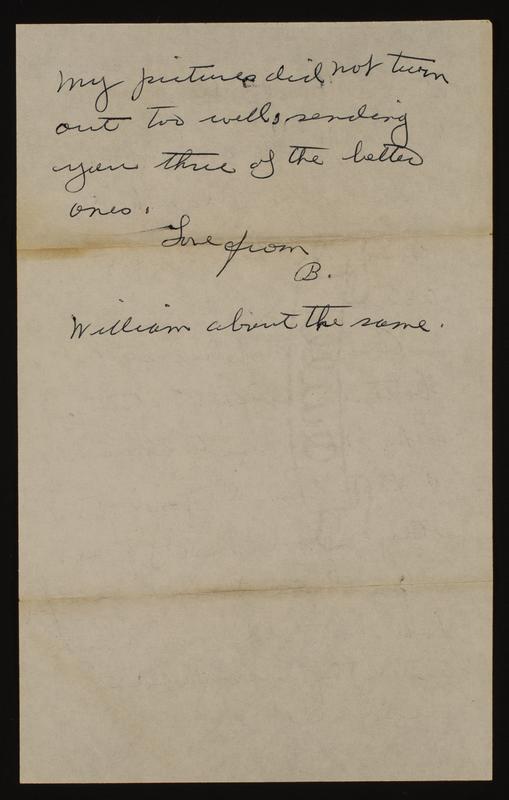 My pictures did not turn
out too well, sending
you three of the better
ones.
Love from
B.
William about the same.